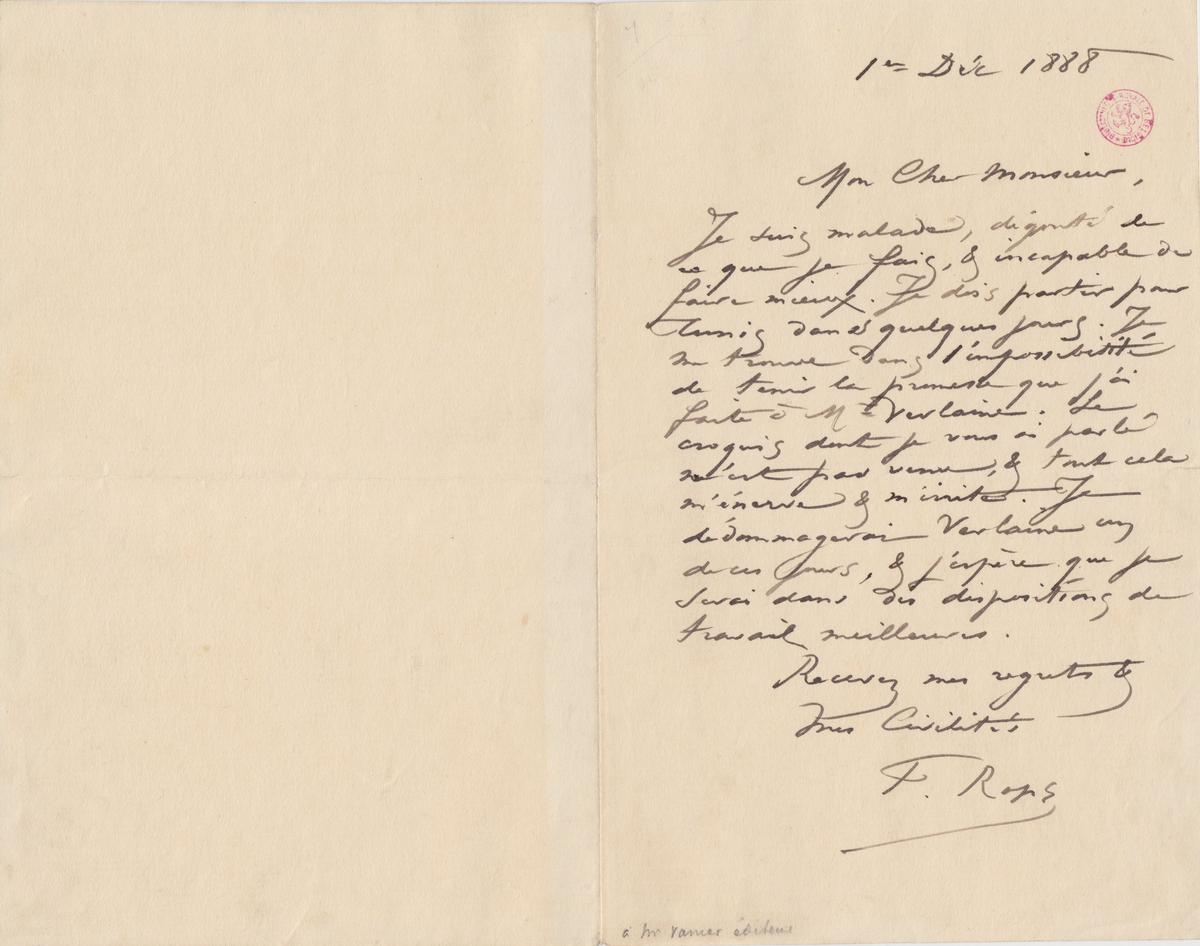 1er Déc 1888
BIBLIOTHÈQUE ROYALE DE BELGIQUE
Mon Cher Monsieur,
Je suis malade, dégouté de
ce que je fais, & incapable de
faire mieux. Je dois partir pour
Tunis dans quelques jours. Je
me trouve dans l'impossibilité
de tenir la promesse que j'ai
faite à Mr Verlaine. Le
croquis dont je vous ai parlé
n'est pas venu, & tout cela
m'énerve & m'irrite. Je
dédommagerai Verlaine un
de ces jours, & j'espère que je
serai dans des dispositions de
travail meilleures.
Recevez mes regrets &
mes Civilités
F. Rops
à Mr Vanier éditeur